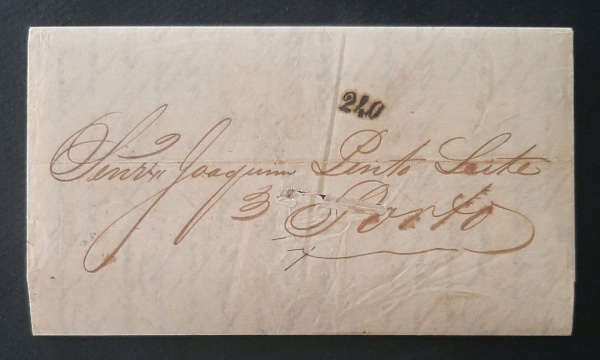 240
Senr Joaquim Pinto Leite
3 Porto